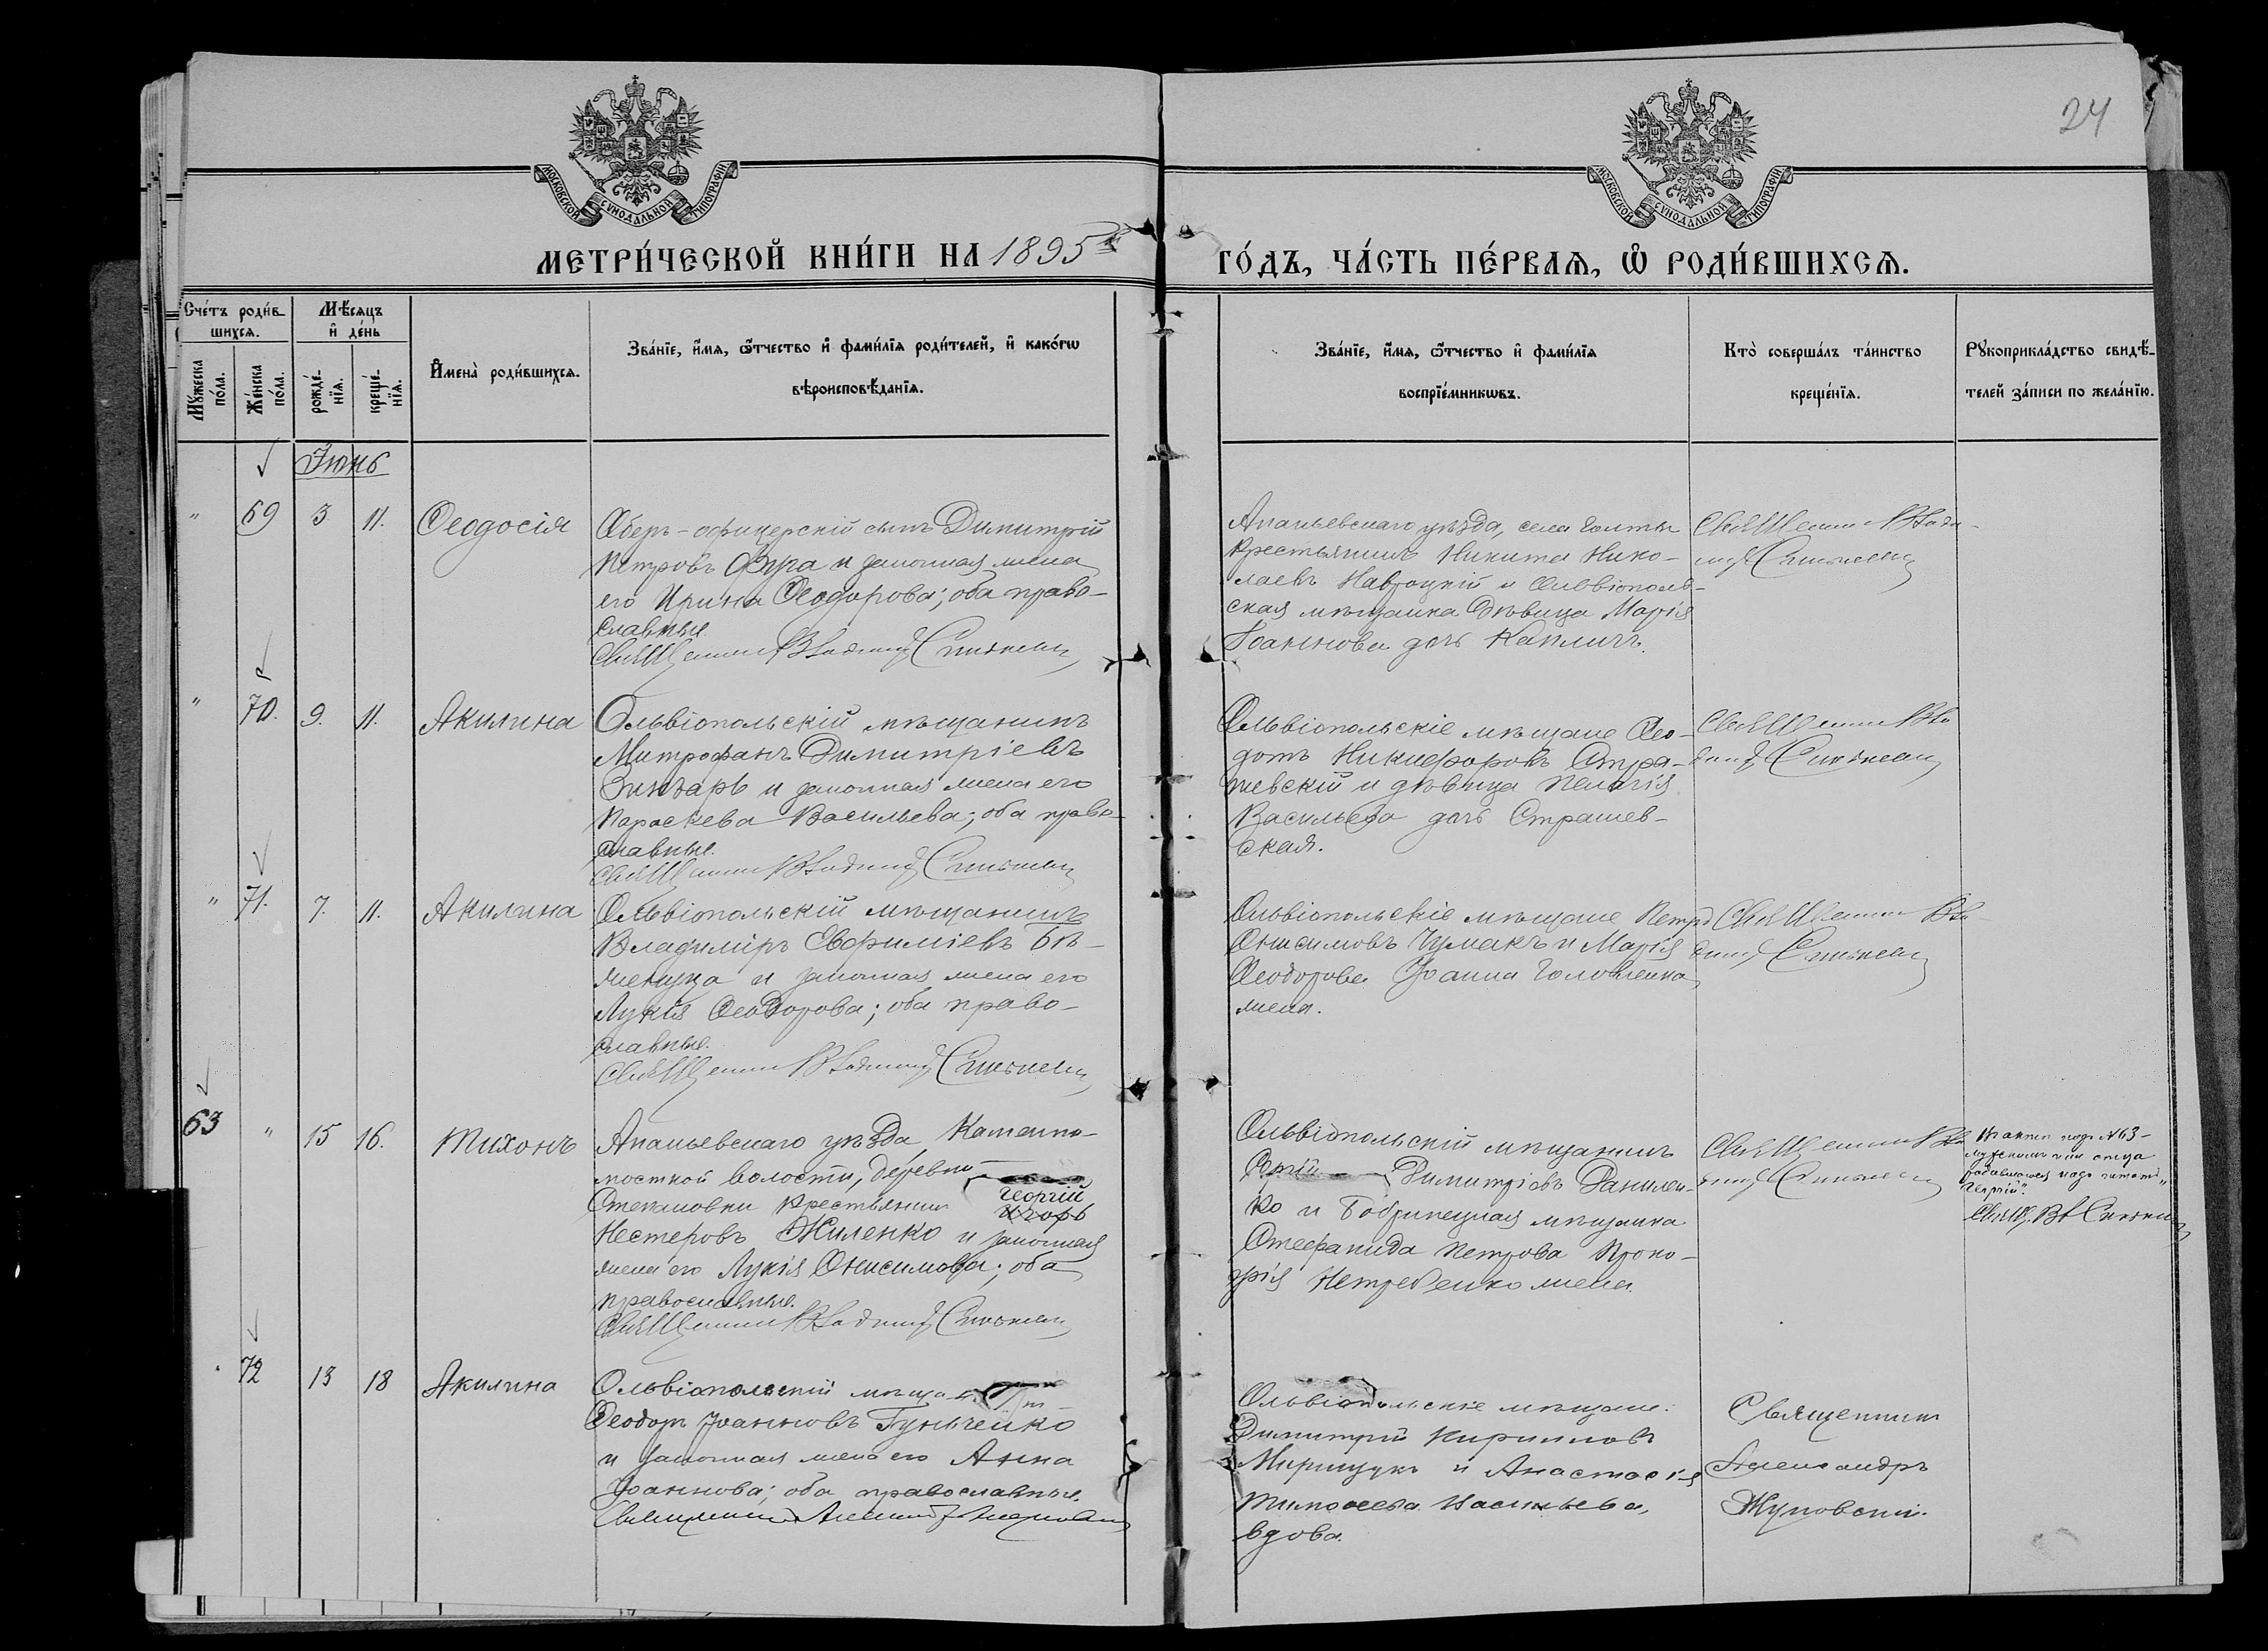 24
МОСКОВСКОЙ СѴНОДАЛЬНОЙ ТИПОГРАФІИ
МОСКОВСКОЙ СѴНОДАЛЬНОЙ ТИПОГРАФІИ
МЕТРИ́ЧЕСКОЙ КНИ́ГИ НА 1895
ГО́ДЪ, ЧА́СТЬ ПЕ́РВАЯ, Ѽ РОДИ́ВШИХСЯ.
Сче́тъ роди́в-
шихся.
Мѣ́сяцъ
и де́нь
Му́жеска
по́ла.
Же́нска
по́ла.
рожде́-
нїя.
креще́-
нїя.
Имена̀ роди́вшихся.
Зва́нїе, и́мя, ѻ́тчество и фами́лїя роди́телей, и како́гѡ
вѣроисповѣ́данїя.
Зва́нїе, и́мя, ѻ́тчество и фами́лїя
воспрїе́мникѡвъ.
Кто̀ соверша́лъ та́инство
креще́нїя.
Рꙋкоприкла́дство свидѣ́-
телей за́писи по жела́нїю.
Іюнь
" 69 3 11. Ѳеодосія
Оберъ-офицерскій сынъ Димитрій
Петровъ Фуга и законная жена
его Ирина Ѳеодорова; оба право-
славные.
Священник Владимір
Ананьевскаго уѣзда, села Голты
крестьянинъ Никита Нико-
лаевъ Навроцкій и Ольвіополь-
ская мѣщанка дѣвица Марія
Іоаннова дочь Капличъ.
Священник Влади-
мір
" 70. 9. 11. Акилина
Ольвіопольскій мѣщанинъ
Митрофанъ Димитріевъ
Зинзарь и законная жена его
Параскева Васильева; оба право-
славные.
Священник Владимір
Ольвіопольскіе мѣщане Ѳео-
дотъ Никифоровъ Стра-
шевскій и дѣвица Пелагія
Васильева дочь Страшев-
ская.
Священник Вла
димір
" 71. 7. 11. Акилина
Ольвіопольскій мѣщанинъ
Владиміръ Евфиміевъ Бѣ-
и законная жена его
Лукія Ѳеодорова; оба право-
славные.
Священник Владимір
Ольвіопольскіе мѣщане Петръ
Онисимовъ Чумакъ и Марія
Ѳеодорова Іоанна Головченка
жена.
Священник Вла-
димір
63 " 15 16. Тихонъ
Ананьевскаго уѣзда, Каменно-
мостской волости, деревни
Степановки крестьянинъ Георгій
Игорь
Нестеровъ Жиленко и законная
жена его Лукія Онисимова; оба
православные.
Священник Владимір
Ольвіопольскій мѣщанинъ
Димитріевъ Данилен-
ко и Бобринецкая мѣщанка
Стефанида Петрова Проко-
пія Нетребенко жена.
Священник Вл
димір
под №63-
имя отца
надо читать
"Георгій".
Свящ. Вл
72 13 18 Акилина
Ольвіопольскій мѣщан
Ѳеодотъ Іоанновъ Гунченко
и законная жена его Анна
Іоаннова; оба православные.
Священник Александръ Жуковскій
Ольвіопольскіе мѣщане:
Димитрій Кирилловъ
Мирищукъ и Анастасія
Тимоѳеева Васильева,
вдова.
Священникъ
Александръ
Жуковскій.